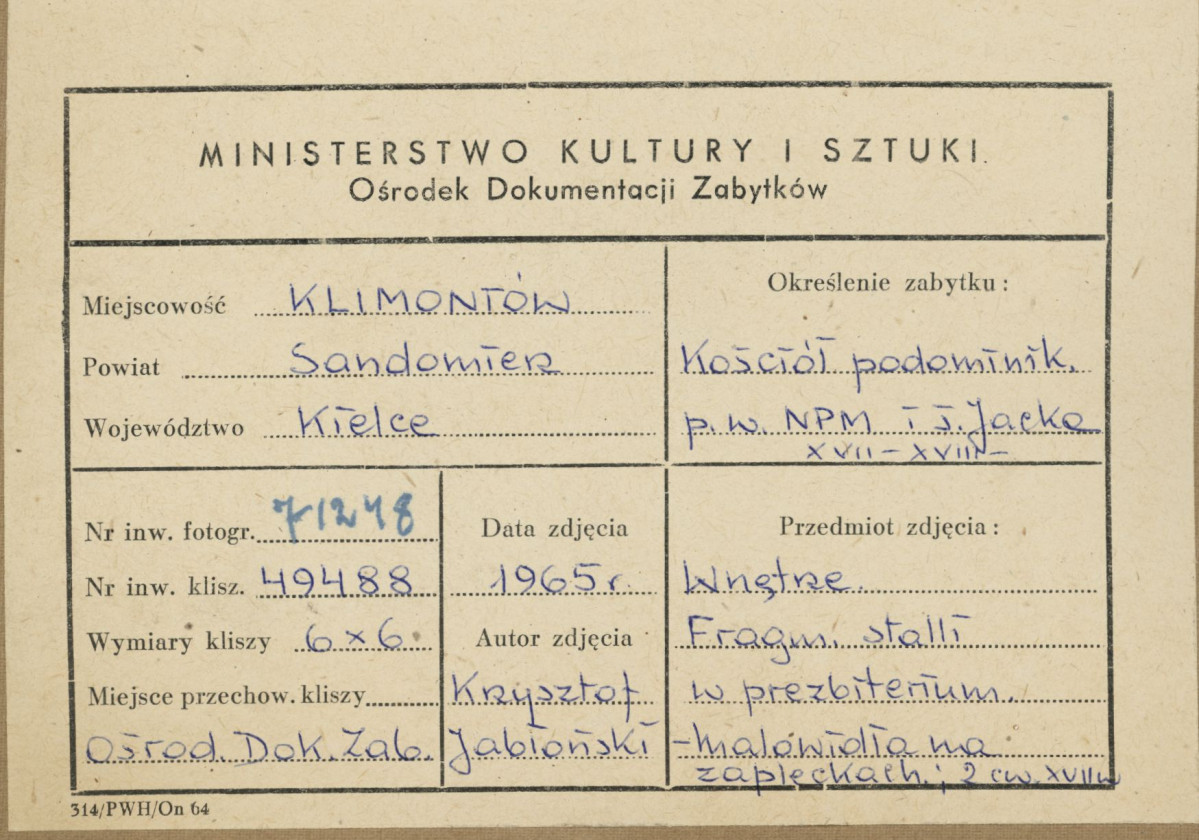 MINISTERSTWO KULTURY I SZTUKI.
Ośrodek Dokumentacji Zabytków
Miejscowość KLIMONTÓW
Powiat Sandomierz
Województwo Kielce
Określenie zabytku:
Kościół podominik.
p.w. NPM i ś. Jacka
XVII – XVIII –
Nr inw. fotogr. 71248
Nr inw. klisz. 49488
Wymiary kliszy 6x6
Miejsce przechow. kliszy
Ośrod. Dok. Zab.
Data zdjęcia
1965 r
Autor zdjęcia
Krzysztof
Jabłoński
Przedmiot zdjęcia:
Wnętrze.
Fragm. stalli
w prezbiterium.
– malowidła na
zapleckach; 2 ćw. XVII w
314/PWH/On 64